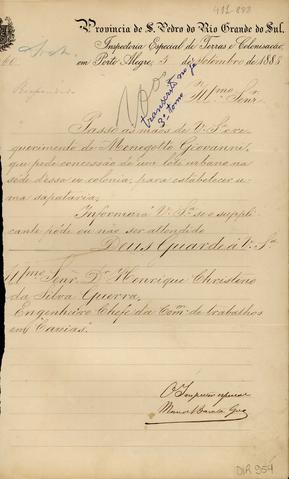 411-888
Provincia de S. Pedro do Rio Grande do Sul.
Inspectoria Especial de Terras e Colonisação,
em Porto Alegre, 5 de setembro de 1888
Respondido
transcripto no
3º tomo
Illmo Senr.
Passo ás mãos de V. Sª o re-
querimento de Menegotto Giovanni,
que pede concessão de um lote urbano na
séde dessa ex colonia, para estabelecer u-
ma sapataria;
Informará V. Sª se o suppli-
cante póde ou não ser attendido
Deus Guarde á V. Sª
Illmo Senr. Dr Henrique Christino
da Silva Guerra,
Engenheiro Chefe da Comm. de trabalhos
em "Caxias"
O Inspector especial
Manoel Barata Goes
DIR 954